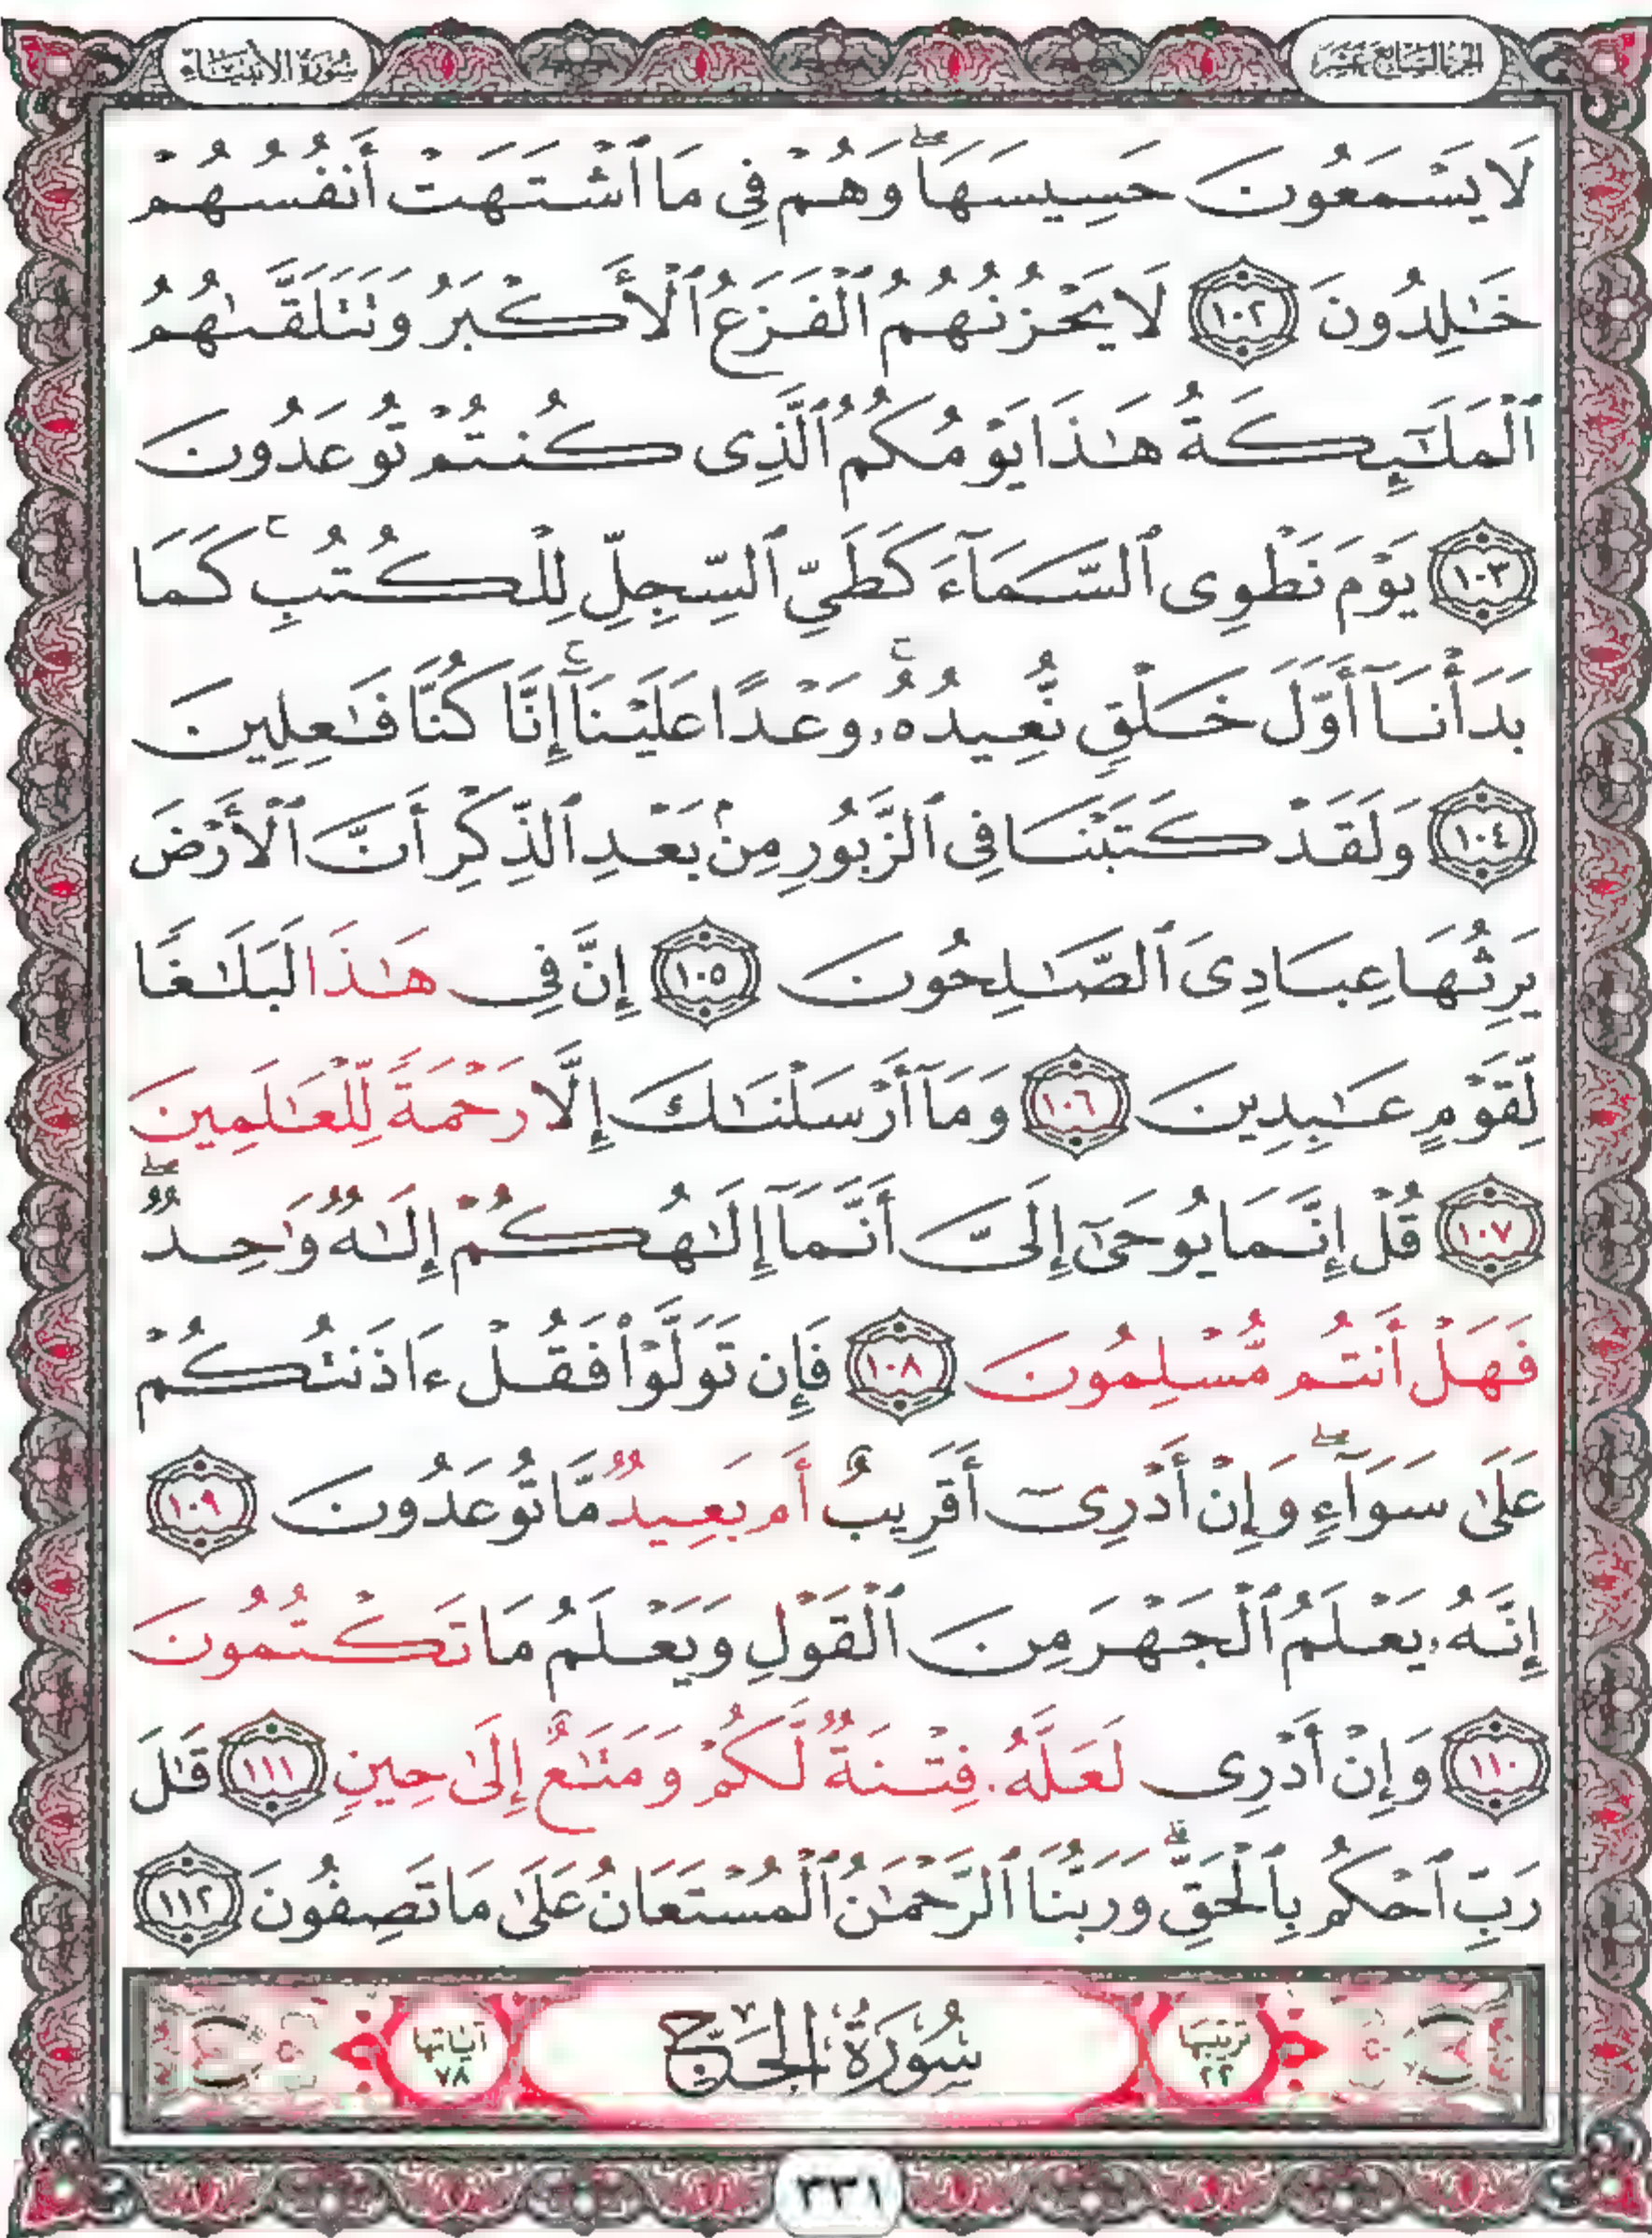 سُورَةُ الأَنبِيَاءِ
الجُزْءُ السَّابِعَ عَشَرَ
لَا يَسْمَعُونَ حَسِيسَهَا ۖ وَهُمْ فِي مَا ٱشْتَهَتْ أَنفُسُهُمْ
خَٰلِدُونَ ١٠٢ لَا يَحْزُنُهُمُ ٱلْفَزَعُ ٱلْأَكْبَرُ وَتَتَلَقَّىٰهُمُ
ٱلْمَلَٰٓئِكَةُ هَٰذَا يَوْمُكُمُ ٱلَّذِى كُنتُمْ تُوعَدُونَ
١٠٣ يَوْمَ نَطْوِى ٱلسَّمَآءَ كَطَىِّ ٱلسِّجِلِّ لِلْكُتُبِ ۚ كَمَا
بَدَأْنَآ أَوَّلَ خَلْقٍ نُّعِيدُهُۥ ۚ وَعْدًا عَلَيْنَآ ۚ إِنَّا كُنَّا فَٰعِلِينَ
١٠٤ وَلَقَدْ كَتَبْنَا فِى ٱلزَّبُورِ مِنۢ بَعْدِ ٱلذِّكْرِ أَنَّ ٱلْأَرْضَ
يَرِثُهَا عِبَادِىَ ٱلصَّٰلِحُونَ ١٠٥ إِنَّ فِى هَٰذَا لَبَلَٰغًا
لِّقَوْمٍ عَٰبِدِينَ ١٠٦ وَمَآ أَرْسَلْنَٰكَ إِلَّا رَحْمَةً لِّلْعَٰلَمِينَ
١٠٧ قُلْ إِنَّمَا يُوحَىٰٓ إِلَىَّ أَنَّمَآ إِلَٰهُكُمْ إِلَٰهٌ وَٰحِدٌ ۖ
فَهَلْ أَنتُم مُّسْلِمُونَ ١٠٨ فَإِن تَوَلَّوْا۟ فَقُلْ ءَاذَنتُكُمْ
عَلَىٰ سَوَآءٍ ۖ وَإِنْ أَدْرِىٓ أَقَرِيبٌ أَم بَعِيدٌ مَّا تُوعَدُونَ ١٠٩
إِنَّهُۥ يَعْلَمُ ٱلْجَهْرَ مِنَ ٱلْقَوْلِ وَيَعْلَمُ مَا تَكْتُمُونَ
١١٠ وَإِنْ أَدْرِى لَعَلَّهُۥ فِتْنَةٌ لَّكُمْ وَمَتَٰعٌ إِلَىٰ حِينٍ ١١١ قَٰلَ
رَبِّ ٱحْكُم بِٱلْحَقِّ ۗ وَرَبُّنَا ٱلرَّحْمَٰنُ ٱلْمُسْتَعَانُ عَلَىٰ مَا تَصِفُونَ ١١٢
ترتيبها ٢٢
سُورَةُ الحَجِّ
آياتها ٧٨
٣٣١